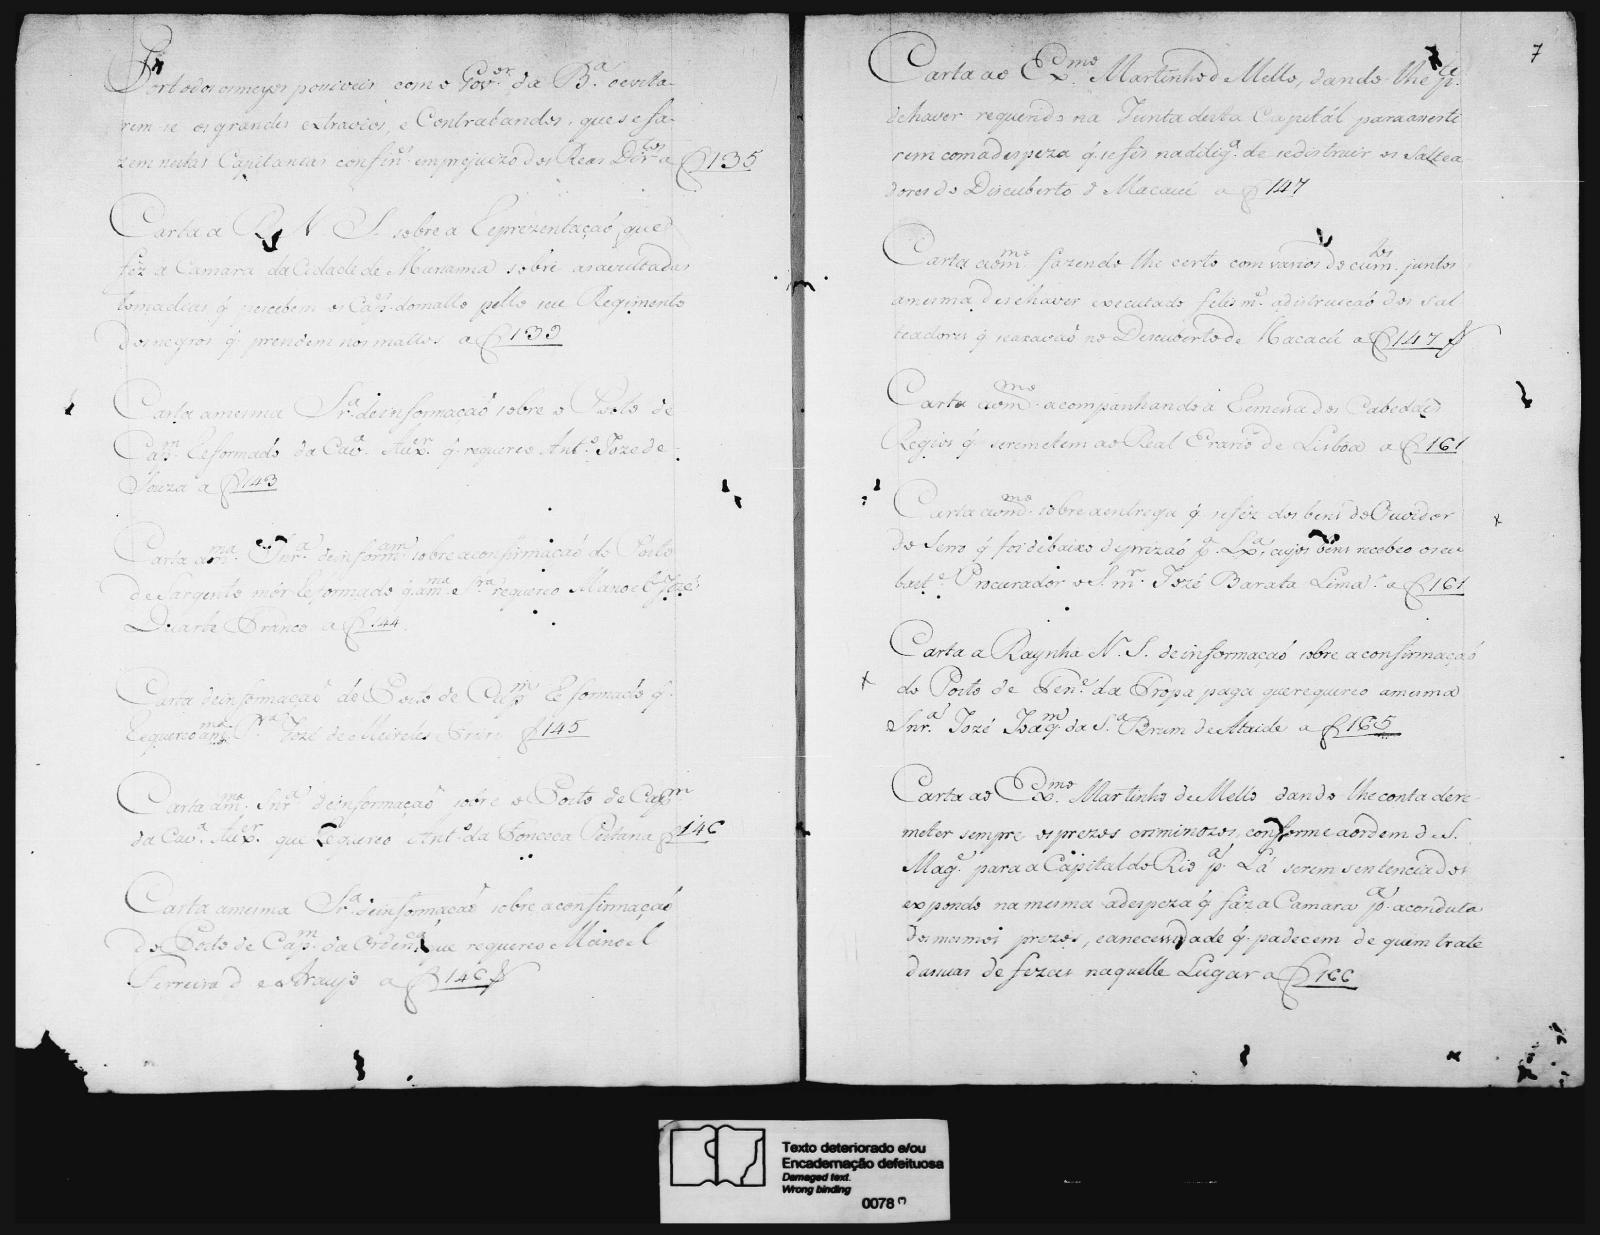 Por todos os meyos possiveis com o Gov.or da B.a o evita-
rem-se os grandes extravios, e Contrabandos, que se fa-
zem nestas Capitanias confin.es em prejuizo dos Reas Dir.tos a f 135
Carta a R. N. S. sobre a Reprezentaçaõ, que
fez a Camara da Cidade de Marianna sobre as avultadas
tomadias q̃ percebem os Cap.es do matto pello seu Regimento
dos negros q̃ prendem nos mattos a f 139
Carta a mesma Sr.a de informaçaõ sobre o Posto de
Cap.m Reformado da Cav.a Aux.r q̃ requereo Ant.o Joze de
Souza a f 143
Carta a m.ma Snr.a de inform.am sobre a confirmaçaõ do Posto
de Sargento mór Reformado q̃ a m.ma Sr.a requereo Manoel Joze
Duarte Franco a f 144
Carta de informaçaõ do Posto de Cap.m Reformado q̃
Requereo a m.ma Sr.a Jozé de Meireles Freire f 145
Carta a m.ma Snr.a de informaçaõ sobre o Posto de Cap.m
da Cav.a Aux.r que Requereo Ant.o da Fonceca Pestana f 146
Carta a mesma Sr.a de informaçaõ sobre a confirmaçaõ
do Posto de Cap.m da Orden.ca que requereo Manoel
Ferreira de Araujo a f 146
7
Carta ao Ex.mo Martinho d Mello, dando-lhe p.e
de haver requerido na Junta desta Capitál para assesti
rem com a despeza q̃ se fes na dilig.a de se distruir os Saltea-
dores do Discuberto d Macacú a f 147
Carta ao m.mo fazendo lhe certo com varios docum.tos juntos
a mesma de se haver executado felism.e a distruicaõ dos Sal
teadores q̃ se achavaõ no Descuberto de Macacú a f 147
Carta ao m.mo acompanhando a Remessa dos Cabedáes
Regios q̃ se remetem ao Real Erario de Lisboa a f 161
Carta ao m.mo sobre a entrega q̃ se féz dos bens do Ouvidor
do Serro q̃ foi debaixo de prizaõ p.a Lx.a, cujos bens recebeo o seu
bast.e Procurador o S. m.r Jozé Barata Lima a f 161
Carta a Raynha N. S. de informaçaõ sobre a confirmaçaõ
do Posto de Ten.e da Tropa paga que requereo a mesma
Snr.a Jozé Joaq.m da S.a Brum de Ataide a f 165
Carta ao Ex.mo Martinho de Mello dando lhe conta de re-
meter sempre os prezos criminozos, conforme a ordem de S.
Mag.e para a Capital do Rio p.a Lá serem sentenciados
expondo na mesma a despeza q̃ fáz a Camara p.a a conduta
dos mesmos prezos, e a necessidade q̃ padecem de quem trate
das suas defezas naquelle Lugar a f 166
Texto deteriorado e/ou
Encadernação defeituosa
Damaged text.
Wrong binding
0078